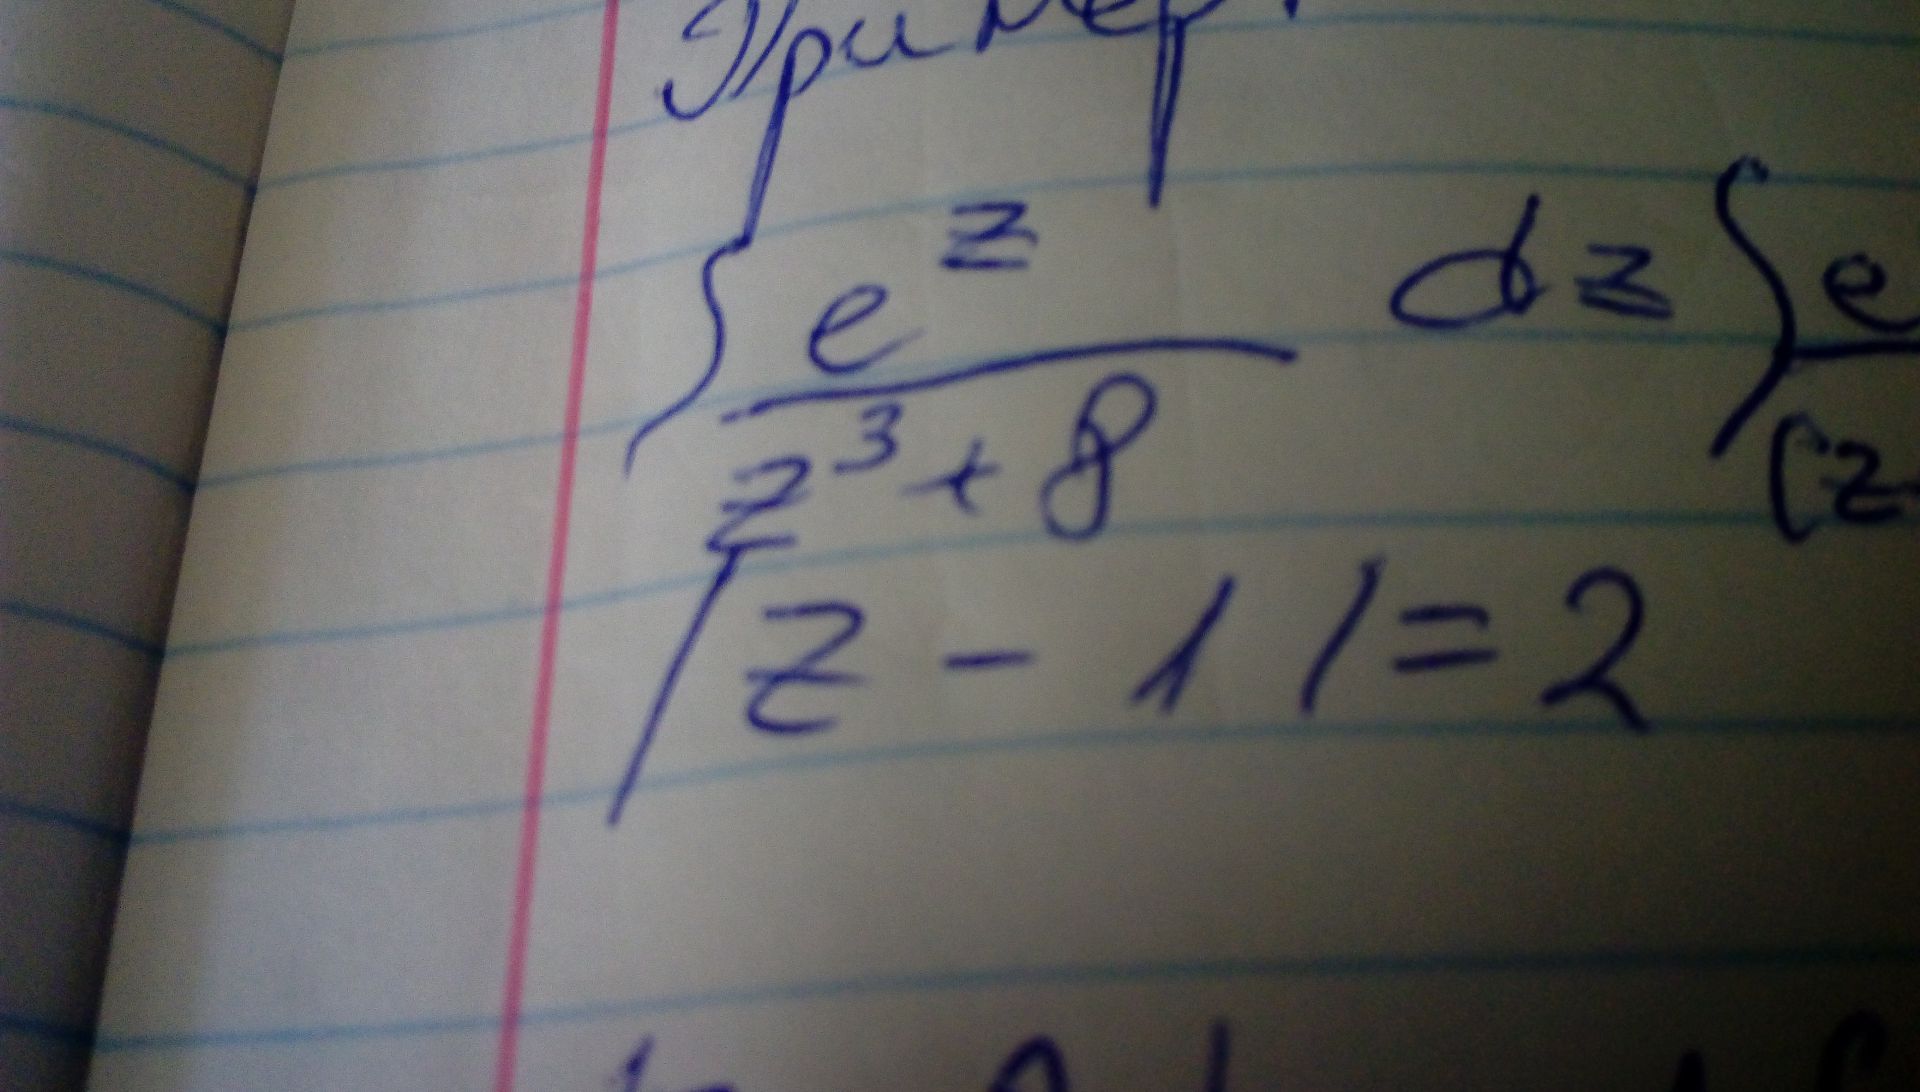 Пример.
∫ e^z / (z^3 + 8) dz ∫ e / (z
|z - 1| = 2